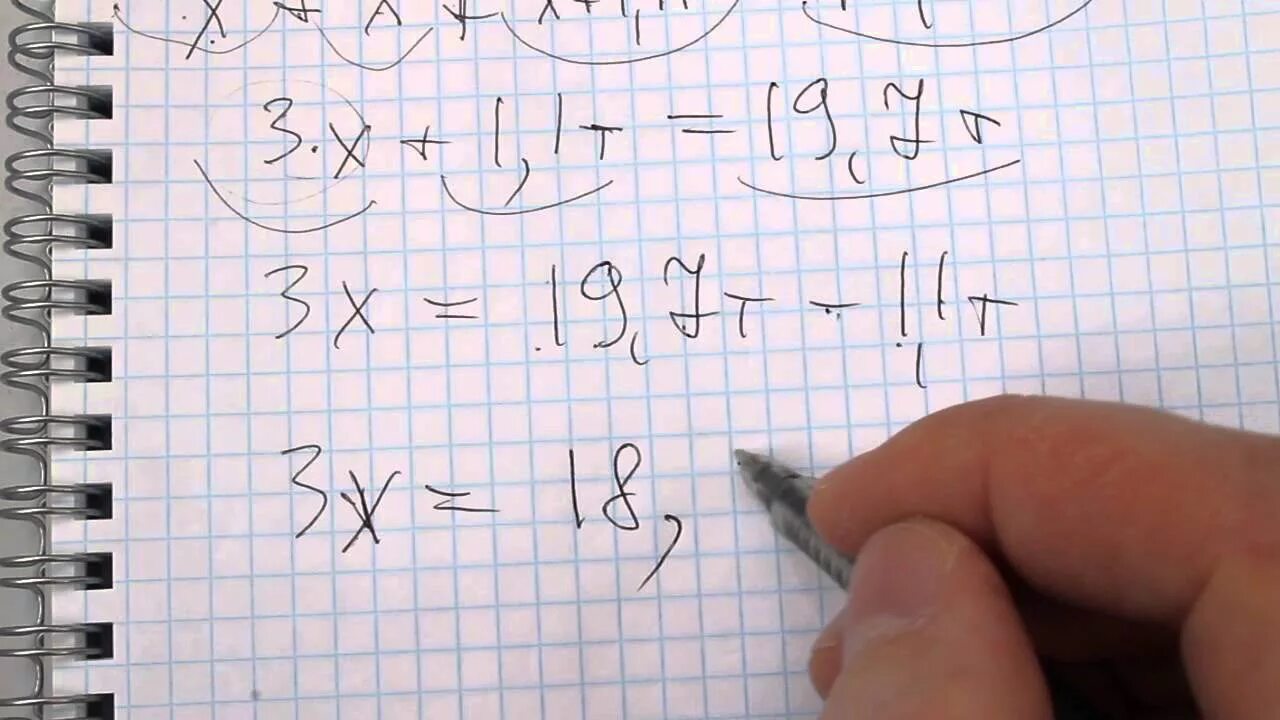 x + x + x+1,1т
3·x + 1,1т = 19,7т
3x = 19,7т - 1,1т
3x = 18,